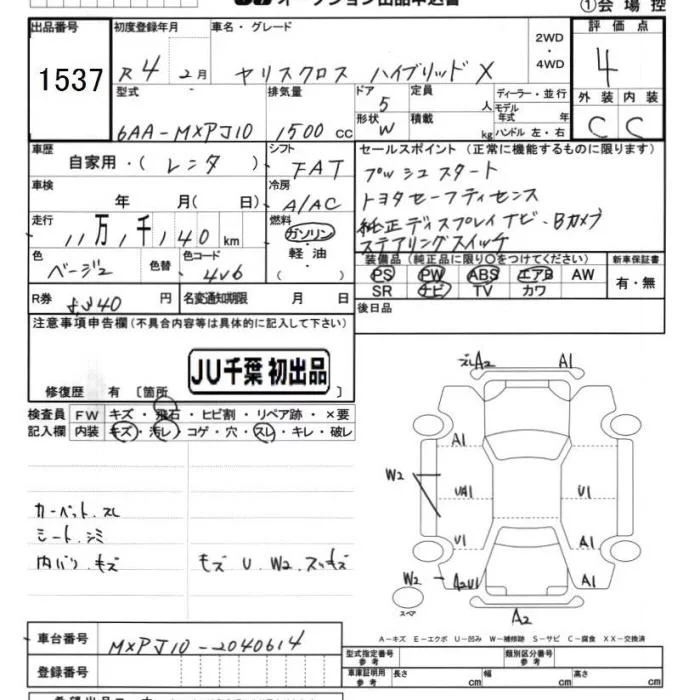 ①会 場 控
出品番号
1537
初度登録年月
車名・グレード
R 4 2月
ヤリスクロス ハイブリッド X
2WD
・
4WD
評 価 点
4
外 装 内 装
C C
型式
6AA-MXPJ10
排気量
1500 cc
ドア 5
形状 W
定員 人
積載 kg
ディーラー・並行
モデル
年式 年
ハンドル 左・右
車歴
自家用・(レンタ)
シフト
FAT
車検
年 月( 日)
冷房
A/AC
走行
11万1千140 km
燃料
ガソリン
・
軽 油
・
( )
色
ベージュ
色替
色コード
4V6
R券
円
名変通知期限 月 日
セールスポイント (正常に機能するものに限ります)
プッシュスタート
トヨタセーフティセンス
純正ディスプレイナビ・Bカメラ
ステアリングスイッチ
装備品 (純正品に限り〇をつけてください)
新車保証書
PS PW ABS エアB AW
SR ナビ TV カワ
有・無
後日品
注意事項申告欄 (不具合内容等は具体的に記入して下さい)
JU千葉 初出品
修復歴 有 〔箇所
検査員
記入欄
FW キズ・飛石・ヒビ割・リペア跡・×要
内装 キズ・汚レ・コゲ・穴・スレ・キレ・破レ
カーペット.スレ
シート.シミ
内バリ.キズ
キズ U W2 スリキズ
ズレA2 A1
A1
W2
UA1 U1
U1 A1
W2 A2U1 A1
スペア
A2
A－キズ E－エクボ U－凹み W－補修跡 S－サビ C－腐食 XX－交換済
車台番号
MXPJ10-2040614
登録番号
型式指定番号
参 考
類別区分番号
参 考
車庫証明用
参 考
長さ cm 幅 cm 高さ cm